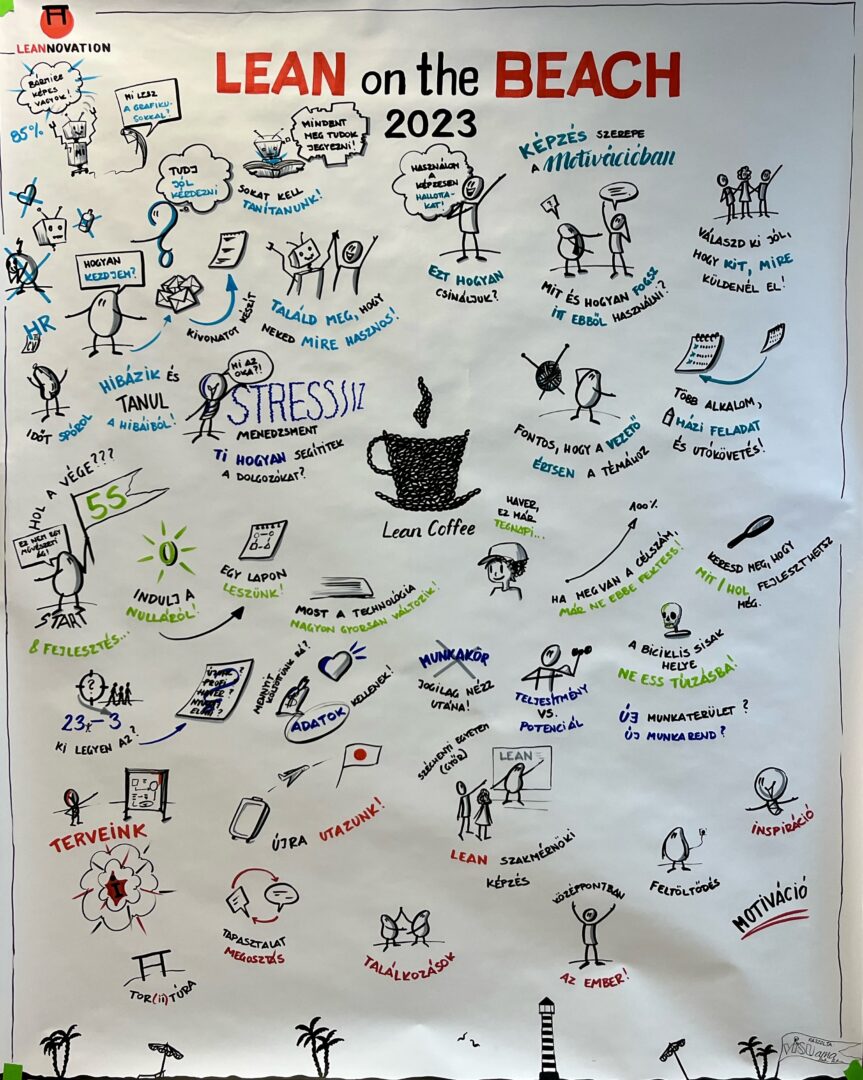 LEANNOVATION
LEAN on the BEACH
2023
BÁRMIRE
KÉPES
VAGYOK!
85%
MI LESZ
A GRAFIKU-
SOKKAL?
TUDJ
JÓL
KÉRDEZNI
MINDENT
MEG TUDOK
JEGYEZNI!
SOKAT KELL
TANÍTANUNK!
HOGYAN
KEZDJEM?
KIVONATOT KÉSZÍT
TALÁLD MEG, HOGY
NEKED MIRE HASZNOS!
HR
CV
IDŐT SPÓROL
HIBÁZIK ÉS
TANUL
A HIBÁIBÓL!
KÉPZÉS SZEREPE
A MOTIVÁCIÓBAN
HASZNÁLOM
A
KÉPZÉSEN
HALLOTTA-
KAT!
EZT HOGYAN
CSINÁLJUK?
?
MIT ÉS HOGYAN FOGSZ
ITT EBBŐL HASZNÁLNI?
VÁLASZD KI JÓL,
HOGY KIT, MIRE
KÜLDENÉL EL!
FONTOS, HOGY A VEZETŐ
ÉRTSEN A TÉMÁHOZ
TÖBB ALKALOM,
HÁZI FELADAT
ÉS UTÓKÖVETÉS!
MI AZ
OKA?!
STRESSSSZ
MENEDZSMENT
TI HOGYAN SEGÍTITEK
A DOLGOZÓKAT?
Lean Coffee
HOL A VÉGE???
5S
EZ NEM EGY
MŰVÉSZETI
ÁG!
START
& FEJLESZTÉS...
0
INDULJ A
NULLÁRÓL!
EGY LAPON
LESZÜNK!
MOST A TECHNOLÓGIA
NAGYON GYORSAN VÁLTOZIK!
HAVER,
EZ MÁR
TEGNAPI...
100%
HA MEGVAN A CÉLSZÁM,
MÁR NE EBBE FEKTESS!
KERESD MEG, HOGY
MIT / HOL FEJLESZTHETSZ
MÉG.
A BICIKLIS SISAK
HELYE
NE ESS TÚLZÁSBA!
?
23 – 3
KI LEGYEN AZ?
MENNYIT
KÖLTÖTTÜNK RÁ?
ADATOK KELLENEK!
MUNKAKÖR
JOGILAG NÉZZ
UTÁNA!
TELJESÍTMÉNY
VS.
POTENCIÁL
ÚJ MUNKATERÜLET?
ÚJ MUNKAREND?
TERVEINK
ÚJRA UTAZUNK!
SZÉCHENYI EGYETEM
(GYŐR)
LEAN
LEAN SZAKMÉRNÖKI
KÉPZÉS
INSPIRÁCIÓ
FELTÖLTŐDÉS
MOTIVÁCIÓ
TAPASZTALAT
MEGOSZTÁS
TALÁLKOZÁSOK
KÖZÉPPONTBAN
AZ EMBER!
TOR(ii)TÚRA
RAJZOLTA